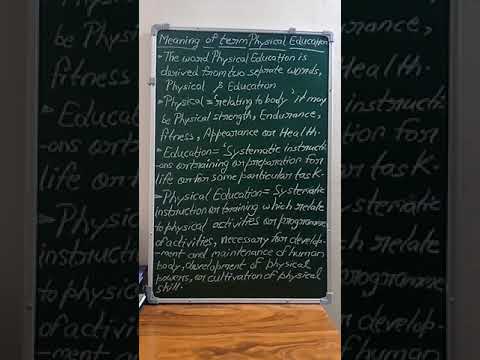 Meaning of term Physical Education
- The word Physical Education is
derived from two seprate words,
Physical & Education
- Physical = 'relating to body' it may
be Physical strength, Endurance,
fitness, Appearance or Health.
- Education = 'Systematic instructi-
ons or training or preparation for
life or for some particular task-
- Physical Education = Systematic
instruction or training which relate
to physical activities or programme
of activities, necessary for develop-
-ment and maintenance of human
body, development of physical
powers, or cultivation of physical
skill.